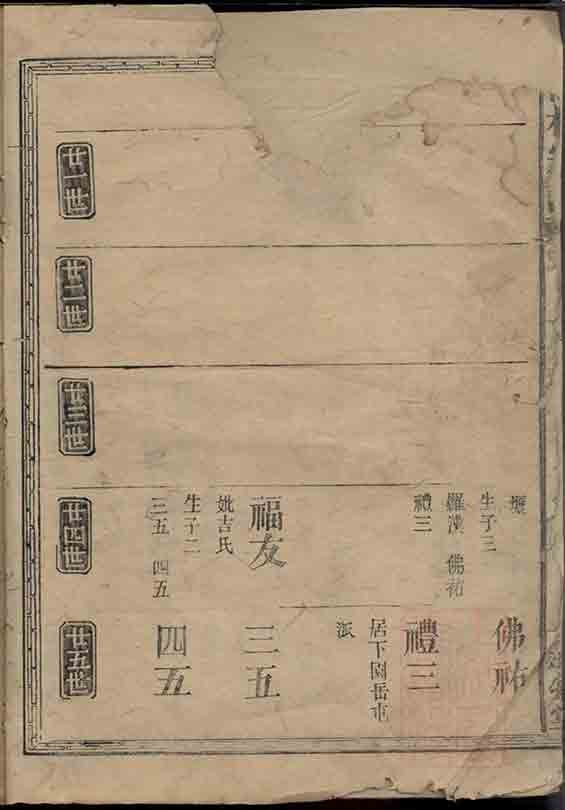 生子三
羅漢 佛祐
禮三
福友
妣吉氏
生子二
三五 四五
佛祐
禮三
居下園岳屯
派
三五
四五
廿一世
廿二世
廿三世
廿四世
廿五世